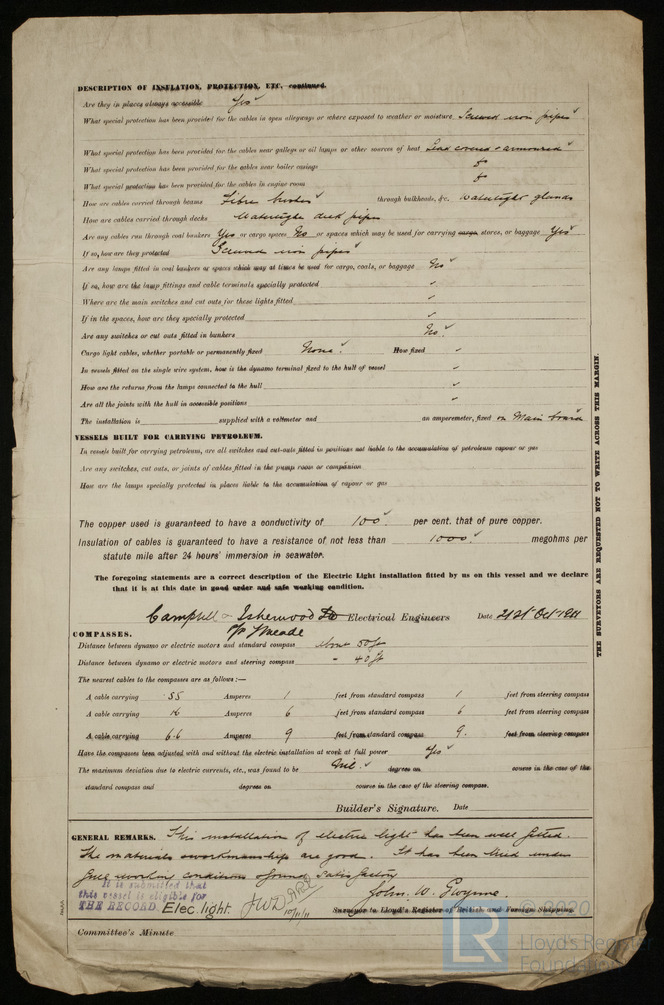 DESCRIPTION OF INSULATION, PROTECTION, ETC. continued.
Are they in places always accessible Yes
What special protection has been provided for the cables in open alleyways or where exposed to weather or moisture Screwed iron pipes
What special protection has been provided for the cables near galleys or oil lamps or other sources of heat Lead covered & armoured
What special protection has been provided for the cables near boiler casings do
What special protection has been provided for the cables in engine room do
How are cables carried through beams Fibre bushes through bulkheads, &c. Watertight glands
How are cables carried through decks Watertight deck pipes
Are any cables run through coal bunkers Yes or cargo spaces No or spaces which may be used for carrying cargo, stores, or baggage Yes
If so, how are they protected Screwed iron pipes
Are any lamps fitted in coal bunkers or spaces which may at times be used for cargo, coals, or baggage No
If so, how are the lamp fittings and cable terminals specially protected
Where are the main switches and cut outs for these lights fitted
If in the spaces, how are they specially protected
Are any switches or cut outs fitted in bunkers No.
Cargo light cables, whether portable or permanently fixed None. How fixed
In vessels fitted on the single wire system, how is the dynamo terminal fixed to the hull of vessel
How are the returns from the lamps connected to the hull
Are all the joints with the hull in accessible positions
The installation is supplied with a voltmeter and an amperemeter, fixed on Main board
VESSELS BUILT FOR CARRYING PETROLEUM.
In vessels built for carrying petroleum, are all switches and cut-outs fitted in positions not liable to the accumulation of petroleum vapour or gas
Are any switches, cut outs, or joints of cables fitted in the pump room or companion
How are the lamps specially protected in places liable to the accumulation of vapour or gas
The copper used is guaranteed to have a conductivity of 100 per cent. that of pure copper.
Insulation of cables is guaranteed to have a resistance of not less than 1000 megohms per
statute mile after 24 hours' immersion in seawater.
The foregoing statements are a correct description of the Electric Light installation fitted by us on this vessel and we declare
that it is at this date in good order and safe working condition.
Campbell & Isherwood Ld Electrical Engineers Date 21st Oct 1911
COMPASSES.
Distance between dynamo or electric motors and standard compass About 50 ft
Distance between dynamo or electric motors and steering compass " 40 ft
The nearest cables to the compasses are as follows:—
A cable carrying .55 Amperes 1 feet from standard compass 1 feet from steering compass
A cable carrying 16 Amperes 6 feet from standard compass 6 feet from steering compass
A cable carrying 6.6 Amperes 9 feet from standard compass 9. feet from steering compass
Have the compasses been adjusted with and without the electric installation at work at full power Yes
The maximum deviation due to electric currents, etc., was found to be Nil. degrees on course in the case of the
standard compass and degrees on course in the case of the steering compass.
Builder's Signature. Date
GENERAL REMARKS. This installation of electric light has been well fitted.
The materials & workmanship are good. It has been tried under
full working conditions & found satisfactory
It is submitted that
this vessel is eligible for
THE RECORD Elec. light. JWD 10/11/11
John. W. Gwynne
Surveyor to Lloyd's Register of British and Foreign Shipping.
Committee's Minute
THE SURVEYORS ARE REQUESTED NOT TO WRITE ACROSS THIS MARGIN.
LR
© 2020
Lloyd's Register
Foundation